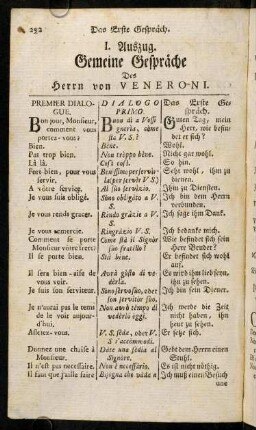 232 Das Erste Gespräch.
I. Auszug.
Gemeine Gespräche
Des
Herrn von VENERONI.
PREMIER DIALO-
GUE.
Bon jour, Monsieur,
comment vous
portez-vous?
Bien.
Pas trop bien.
Là là.
Fort bien, pour vous
servir.
A vôtre service.
Je vous suis obligé.
Je vous rends graces.
Je vous remercie.
Comment se porte
Monsieur vôtre frere?
Il se porte bien.
Il sera bien-aise de
vous voir.
Je suis son serviteur.
Je n'aurai pas le tems
de le voir aujour-
d'hui.
Asséiez-vous.
Donnez une chaise à
Monsieur.
Il n'est pas necessaire.
Il faut que j'aille faire
DIALOGO
PRIMO.
Buon dì a Vossi
gnoria, come
stà V. S.?
Bène.
Non troppo bène.
Così così.
Benissimo per servir-
la (per servir V. S.)
Al suo servizio.
Sono obligato a V.
S.
Rendo gràzie a V.
S.
Ringràzio V. S.
Come stà il Signor
suo fratello?
Stà bène.
Avrà gusto di ve-
derla.
Sono servo suo, over
son servitor suo.
Non avrò tempo di
vedèrlo oggi.
V. S. sèda, over V.
S. s'accommodi.
Date una sèdia al
Signòre.
Non è necessàrio.
Bisogna che vada a
Das Erste Ge-
spräch.
Guten Tag, mein
Herr, wie befin-
det er sich?
Wohl.
Nicht gar wohl.
So hin.
Sehr wohl, ihm zu
dienen.
Ihm zu Diensten.
Ich bin dem Herrn
verbunden.
Ich sage ihm Dank.
Ich bedancke mich.
Wie befindet sich sein
Herr Bruder?
Er befindet sich wohl
auf.
Es wird ihm lieb seyn,
ihn zu sehen.
Ich bin sein Diener.
Ich werde die Zeit
nicht haben, ihn
heut zu sehen.
Er setze sich.
Gebt dem Herrn einen
Stuhl.
Es ist nicht nöthig.
Ich muß einen Besuch